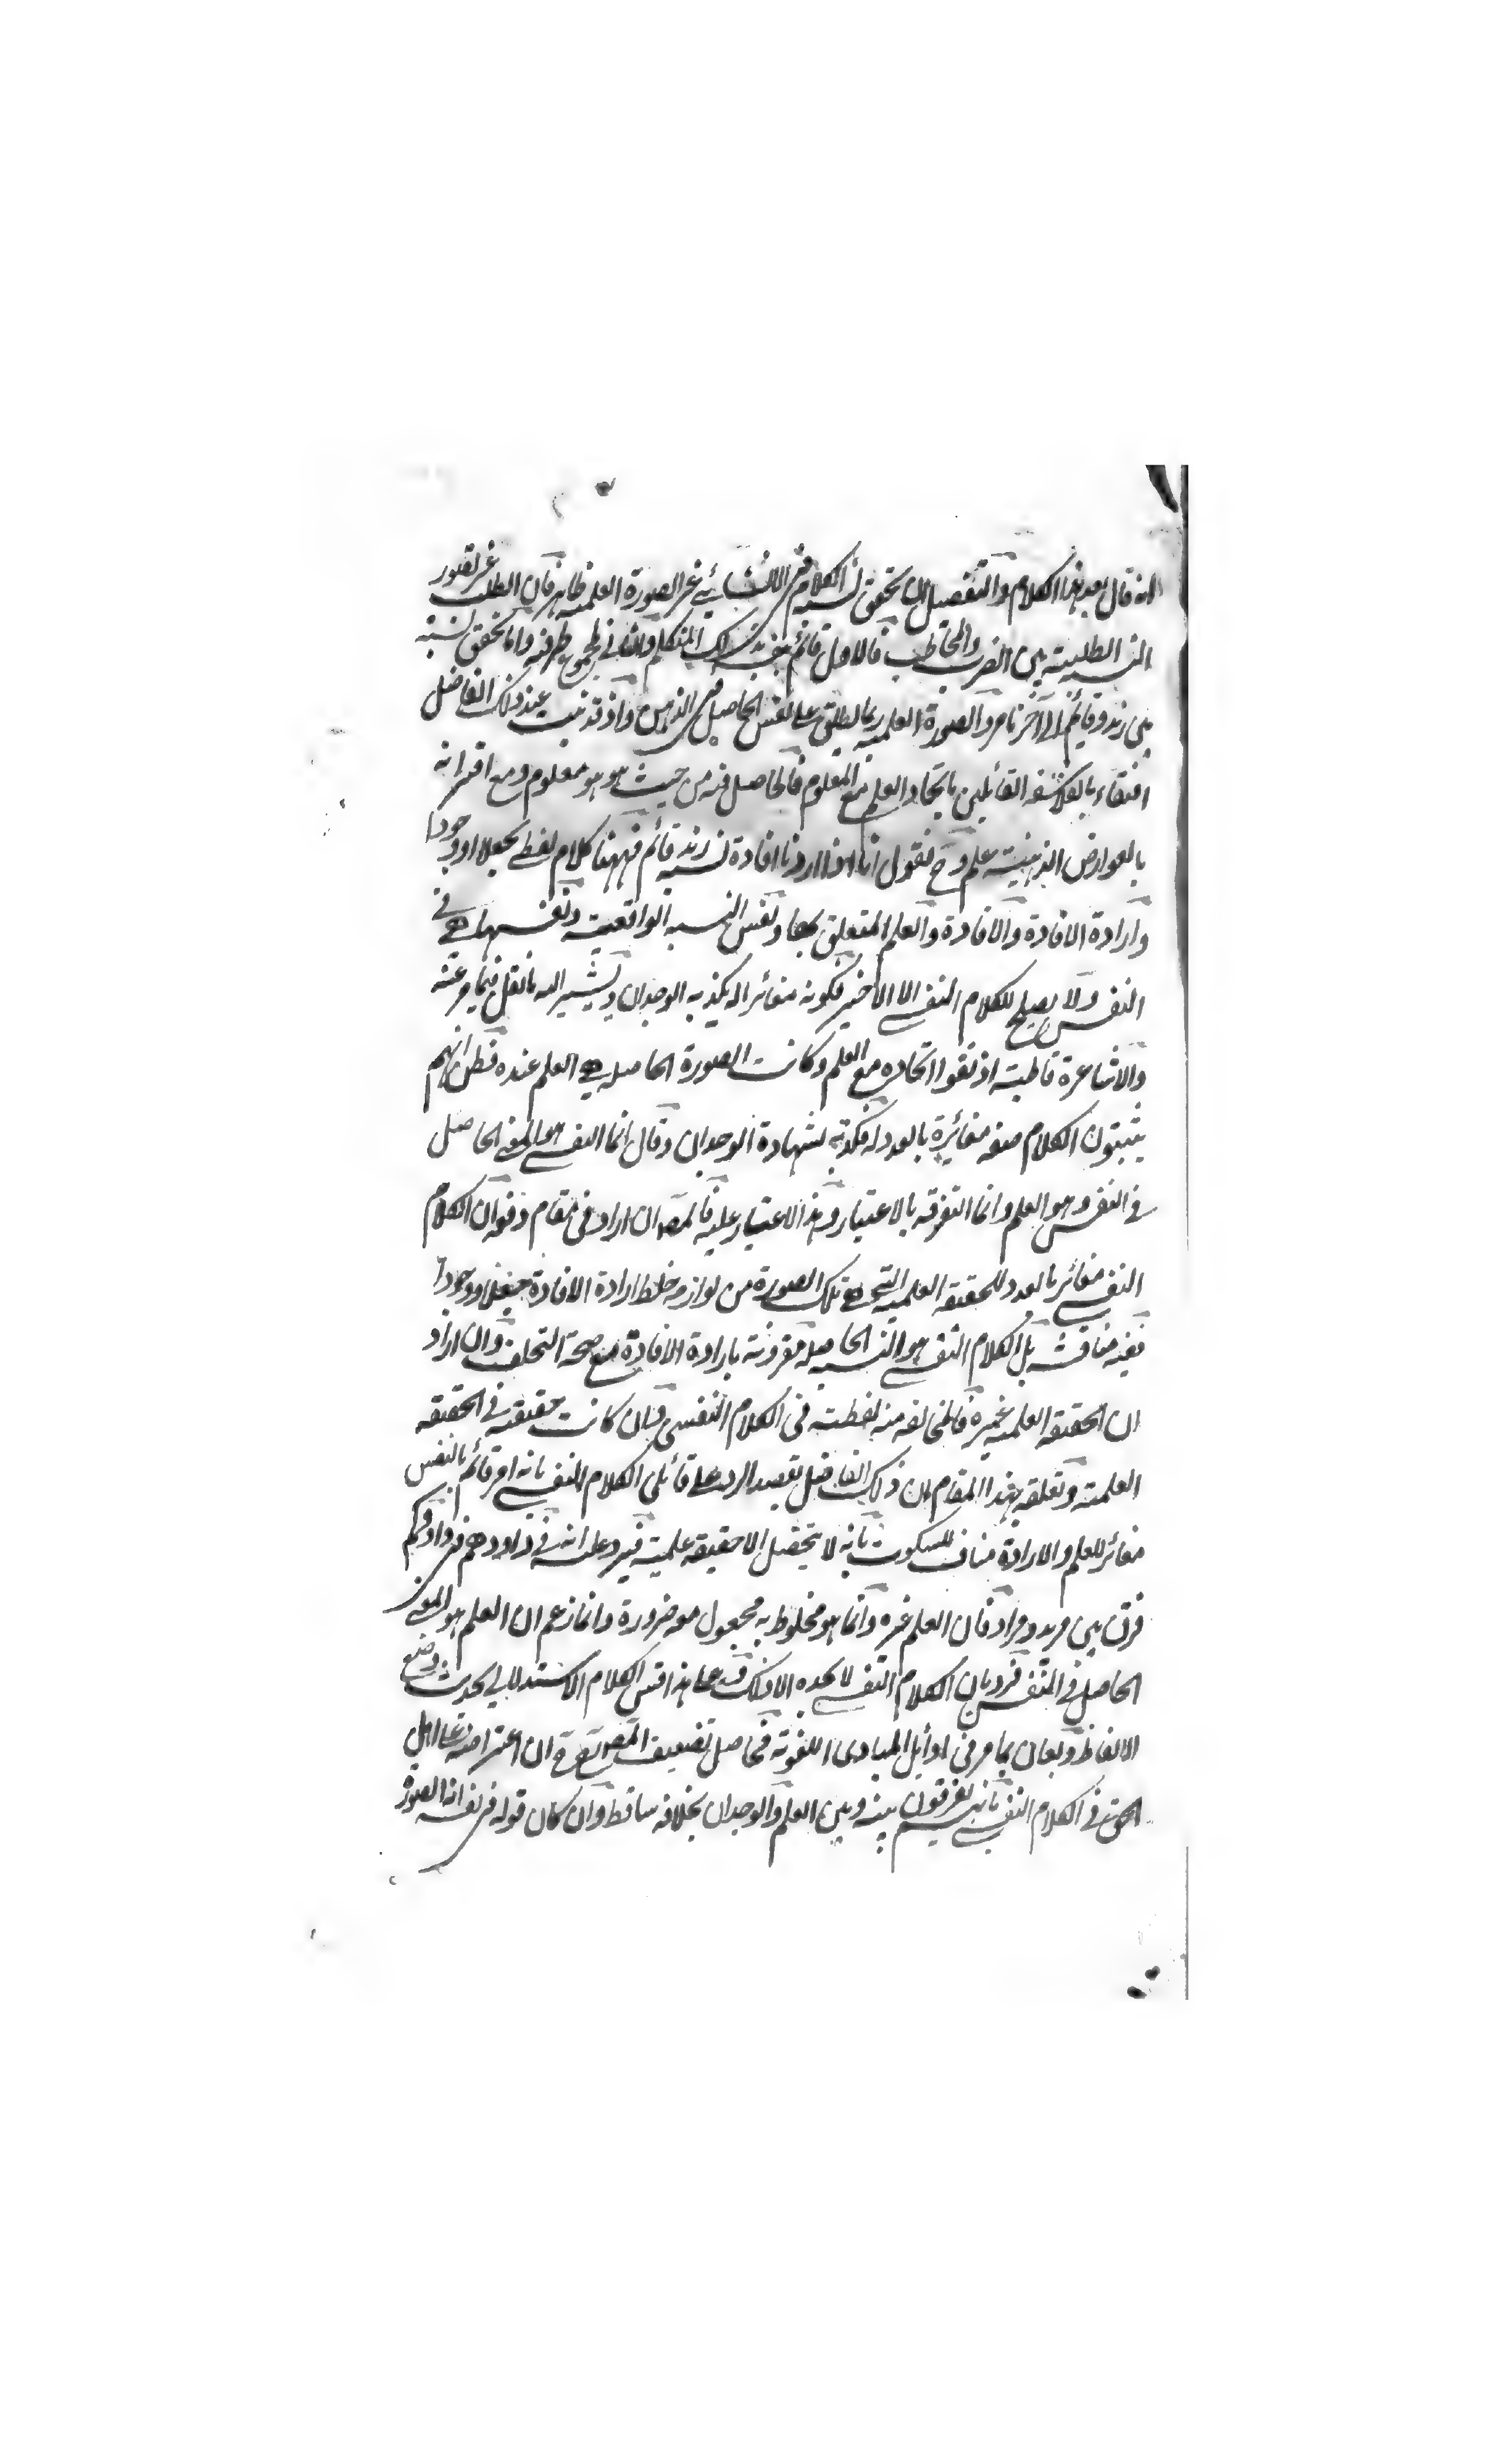 انه قال بعد هذا الكلام والتفصيل ان تحقق نسبة الكلام في الانشائي غير الصورة العلمية ظاهر فان الطلب غير تصور
النسبة الطلبية بين الضرب والمخاطب فالاول قائم بنفس المتكلم والثاني بمجموع طرفيه واما تحقق نسبة
بين زيد وقائم الى آخر ما مر والصورة العلمية ربما يطلق على نفس الحاصل في الذهن واذ قد ثبت عند ذلك الفاضل
اقتفاء بالفلاسفة القائلين باتحاد العلم مع المعلوم فالحاصل فيه من حيث هو هو معلوم ومع اقترانه
بالعوارض الذهنية علم وح نقول انا اذا اردنا افادة نسبة زيد قائم فههنا كلام لفظي وجودا
وارادة الافادة والافادة والعلم المتعلق بها ونفس النسبة الواقعية ونفسها هي في
النفس ولا يصلح للكلام النفسي الا الاخير فكونه مغائرا له يكذبه الوجدان ويشير اليه ما نقل فيما مر عنه
والاشاعرة قاطبة اذ نفوا اتحاده مع العلم وكانت الصورة الحاصلة هي العلم عنده فظن انهم
يثبتون الكلام صفة مغائرة بالعدد له فكذبه بشهادة الوجدان وقال انما النفسي هو المعنى الحاصل
في النفس وهو العلم وانما التفرقة بالاعتبار وهذا الاعتبار عليه فالمص ان اراد في مقام دفعه ان الكلام
النفسي مغائر بالعدد للحقيقة العلمية التي هي تلك الصورة من لوازمه خلط ارادة الافادة وجودا
ففيه مناقشة بل الكلام النفسي هو النسبة الحاصلة مقرونة بارادة الافادة مع صحة التخلف وان اراد
ان الحقيقة العلمية غيره فالمخالفة منه لفظية في الكلام النفسي وان كانت حقيقية في الحقيقة
العلمية وتعلقه بهذا المقام ان ذلك الفاضل بقصد الرد على قائلي الكلام النفسي بانه امر قائم بالنفس
مغائر للعلم والارادة مناف للسكوت بانه لا يتحصل الا حقيقة علمية فيرد عليه انه في واد وهم في واد وكم
فرق بين مريد ومراد فان العلم غيره وانما هو مخلوط به مجعول معه ضرورة وانما زعم ان العلم هو المعنى
الحاصل في النفس فرد بان الكلام النفسي لا يجده الا ذلك وعلى هذا اقتبس الكلام الاستدلالي بحدث وضع
الالفاظ وبعان بما مر في اوائل المبادى اللغوية فحاصل تضعيف المص تفرع ان اعتراضه على اهل
الحق في الكلام النفسي بانهم يفرقون بينه وبين العلم والوجدان بخلافه ساقط وان كان قوله في نفسه ان الصورة